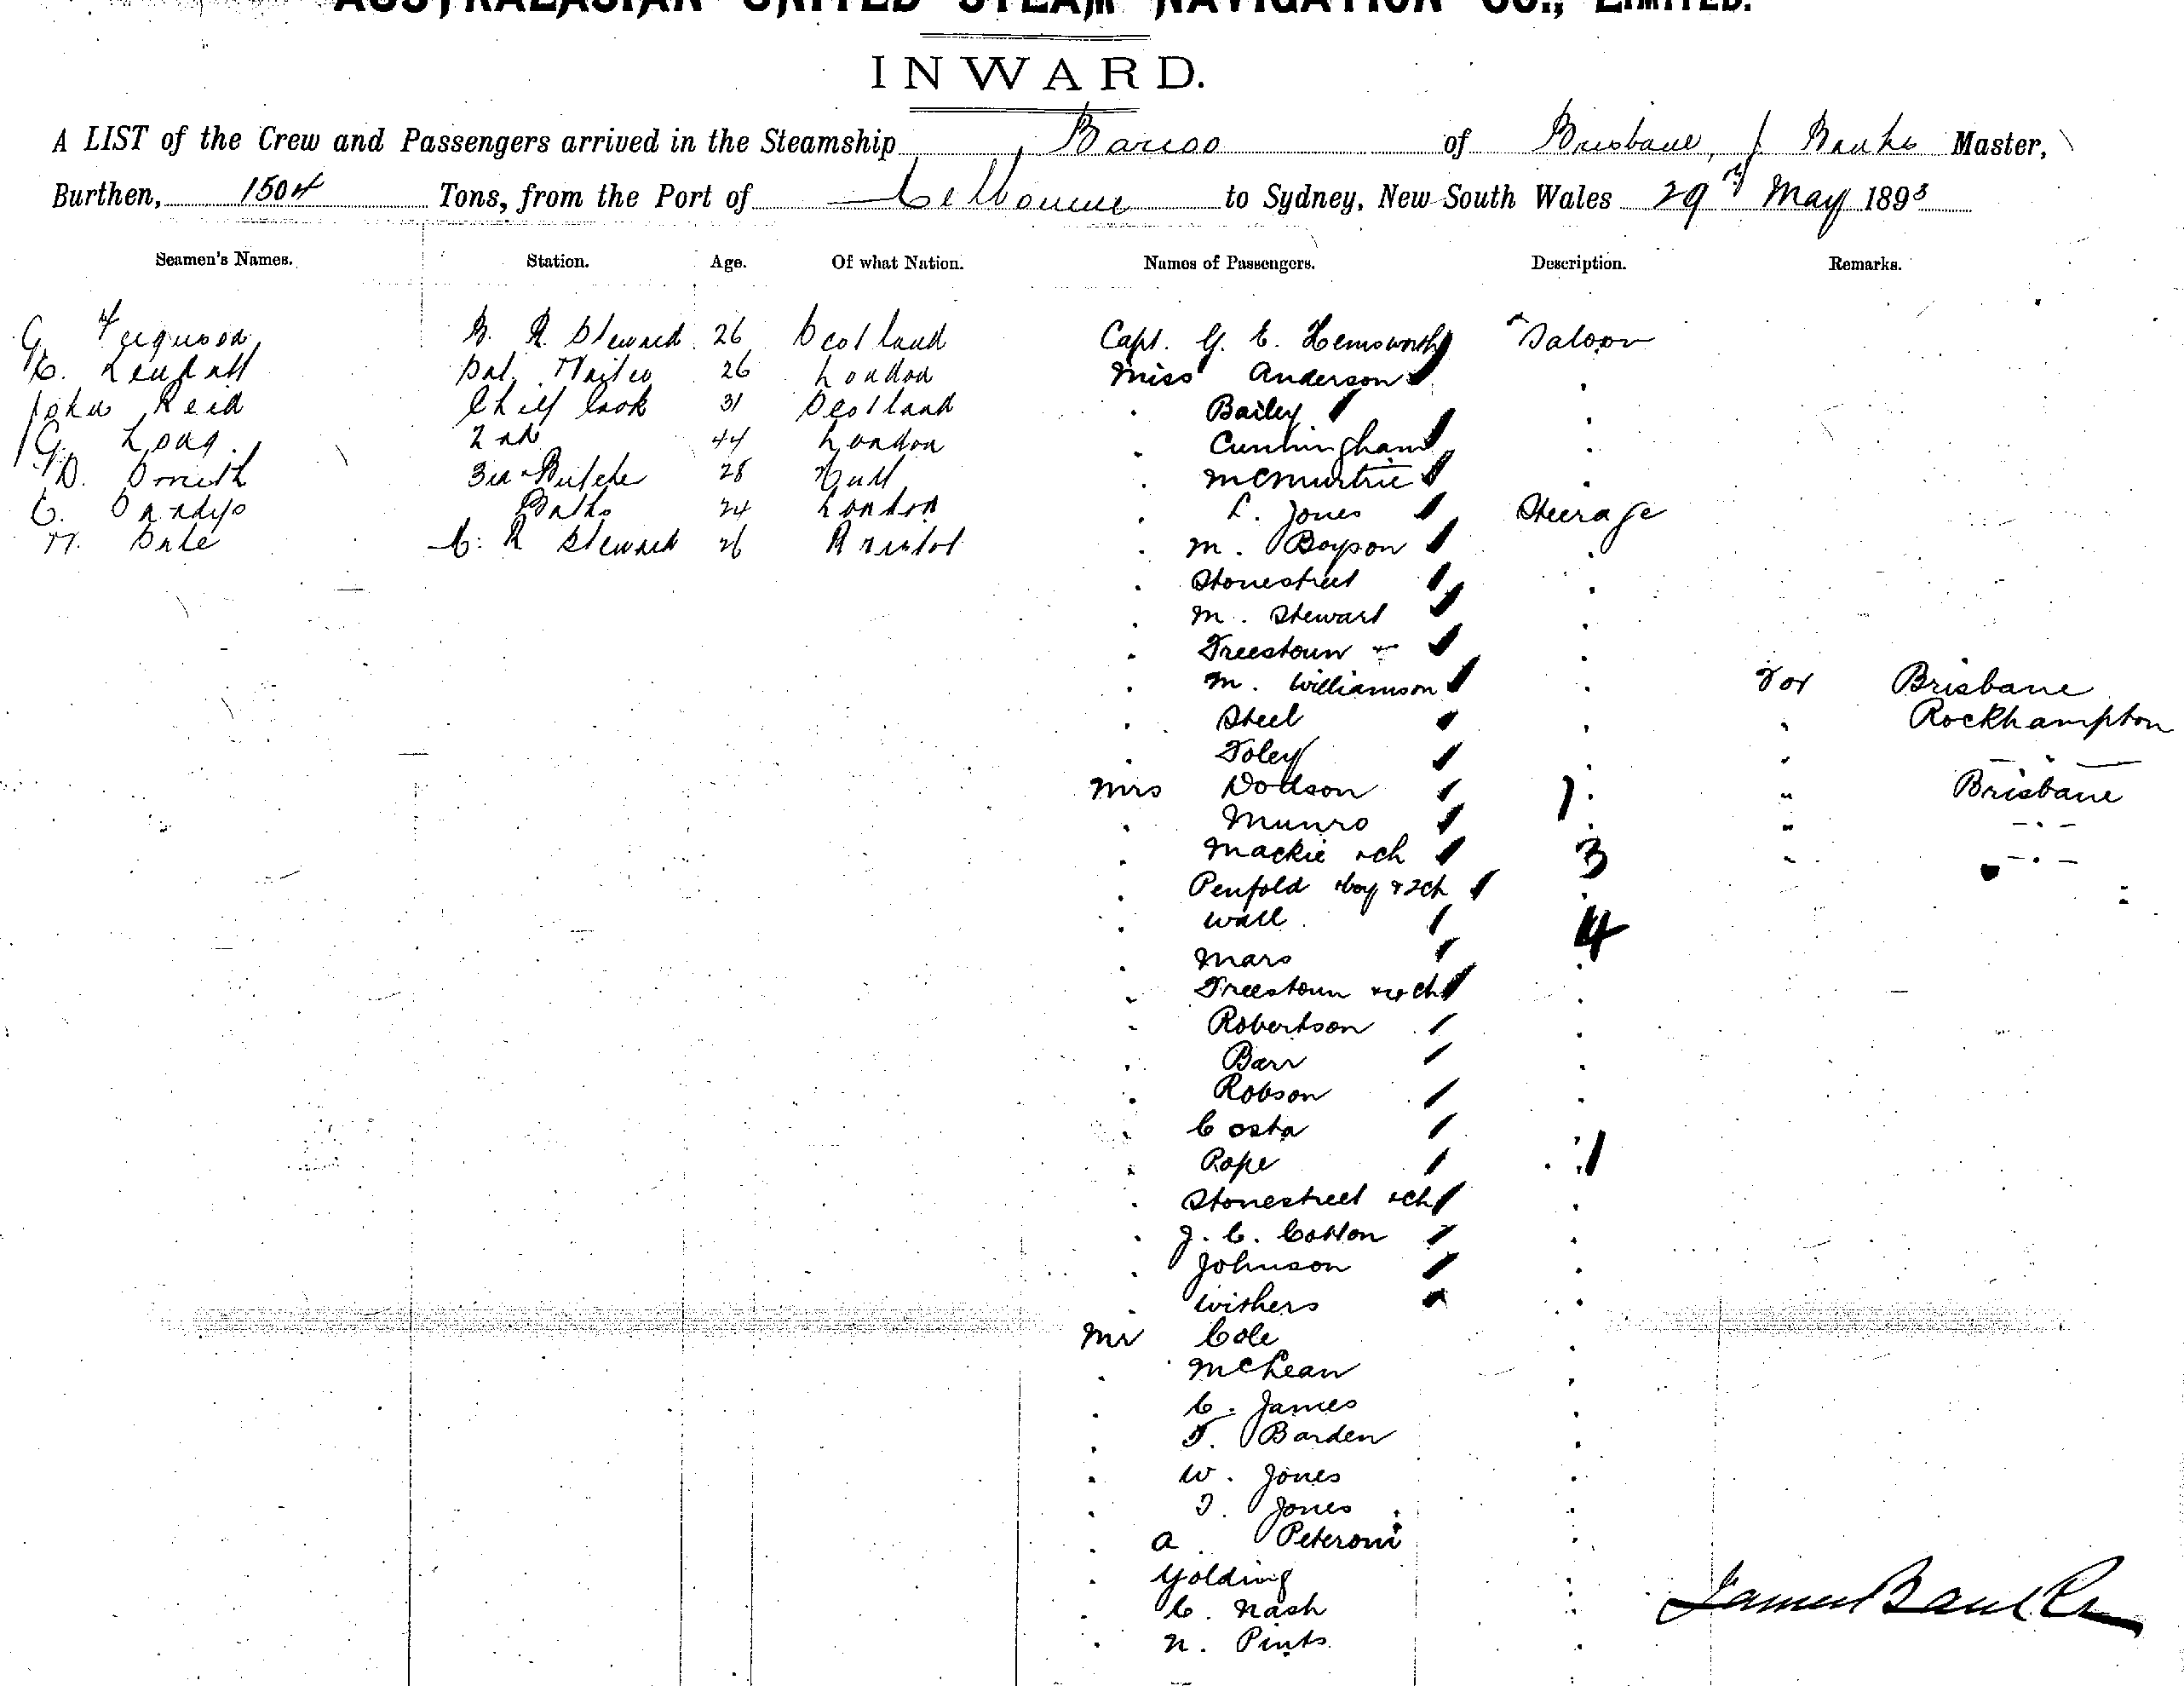 AUSTRALASIAN UNITED STEAM NAVIGATION CO., LIMITED.
INWARD.
A LIST of the Crew and Passengers arrived in the Steamship Barcoo of Brisbane, J Banks Master,
Burthen, 1504 Tons, from the Port of Melbourne to Sydney, New South Wales 29th May 1893
Seamen's Names. Station. Age. Of what Nation. Names of Passengers. Description. Remarks.
G Ferguson B. R. Steward 26 Scotland Capt. G. E. Hemsworth Saloon
Sal. Waiter 26 London Miss Anderson "
John Reid Chief Cook 31 Scotland " Bailey
G. Long 2nd 44 London " Cunningham "
D. Smith 3rd Butcher 28 Hull " McMurtrie "
C. Sandys Baths 24 London " L. Jones Steerage
Sale Steward 26 Bristol " M. Boyson "
" Stonestreet "
" M. Stewart "
" Freestoun "
" M. Williamson " For Brisbane
" Steel " " Rockhampton
" Foley " " — " —
Mrs Dodson 1 " " Brisbane
" Munro " " — " —
" Mackie & ch 3 " — " —
" Penfold & boy & 2 ch "
" Wall 4
" Mars "
" Freestoun & ch "
" Robertson "
" Barr "
" Robson "
" Costa "
" Pope " 1
" Stonestreet & ch "
" J. C. Cotton "
" Johnson "
" Withers "
Mr Cole "
" McLean "
" C. James "
" F. Barden "
" W. Jones "
" J. Jones "
" A. Peteroni "
" Golding "
" C. Nash "
" N. Pints "
James Banks